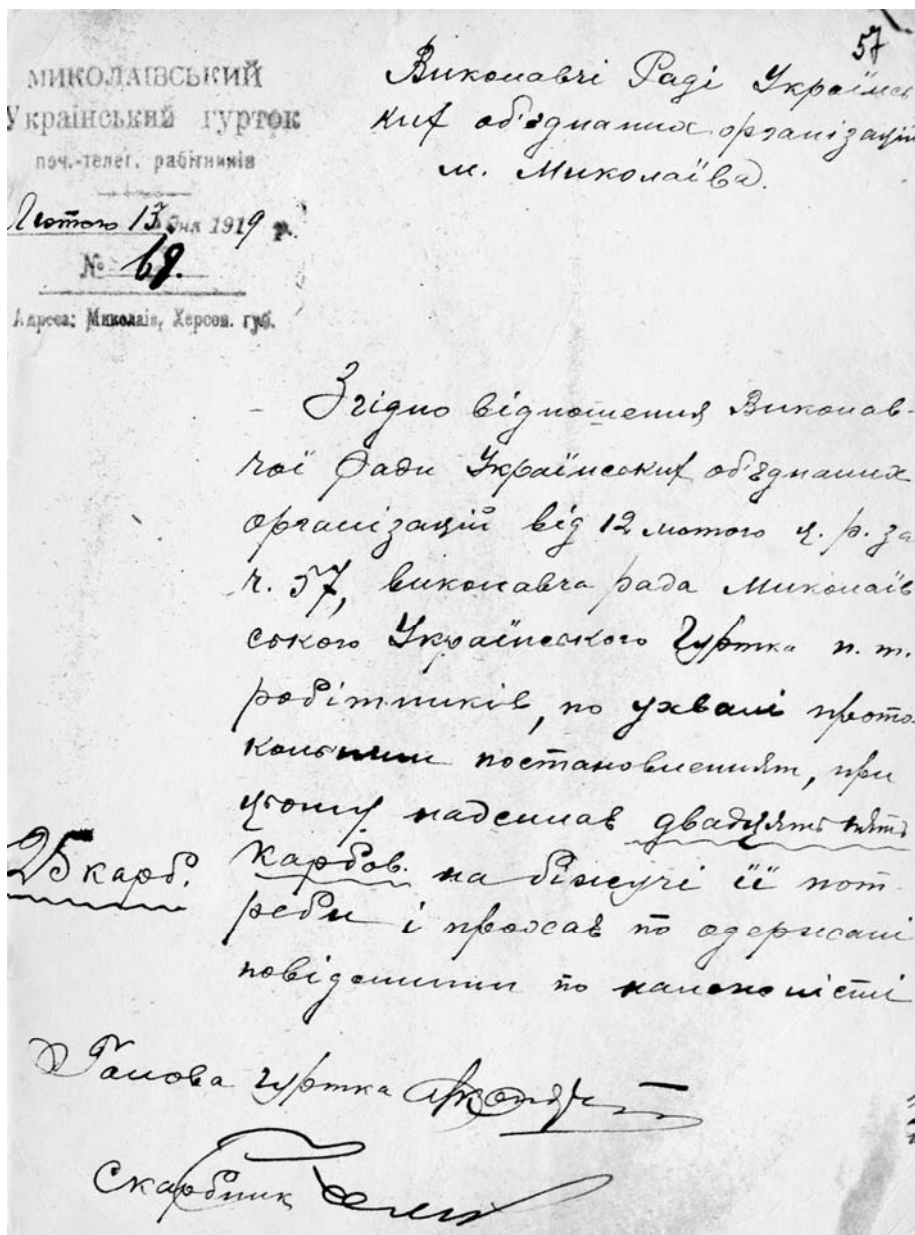 57
МИКОЛАЇВСЬКИЙ
Український гурток
поч.-телег. рабітників
Лютого 13 дня 1919 р.
№ 68.
Адреса: Миколаїв, Херсон. губ.
Виконавчі Раді Українсь
ких об'єднаних організацій
м. Миколаїва.
Згідно відношення Виконав-
чої Ради Українських об'єднаних
організацій від 12 лютого ц. р. за
ч. 57, виконавча рада Миколаїв
ського Українського Гуртка п. т.
робітників, по ухвалі прото
кольним постановленням, при
цьому надсилає двадцять пять
карбов. на біжучі її пот
реби і прохає по одержані
повідомити по
25 карб.
Голова гуртка
Скарбник